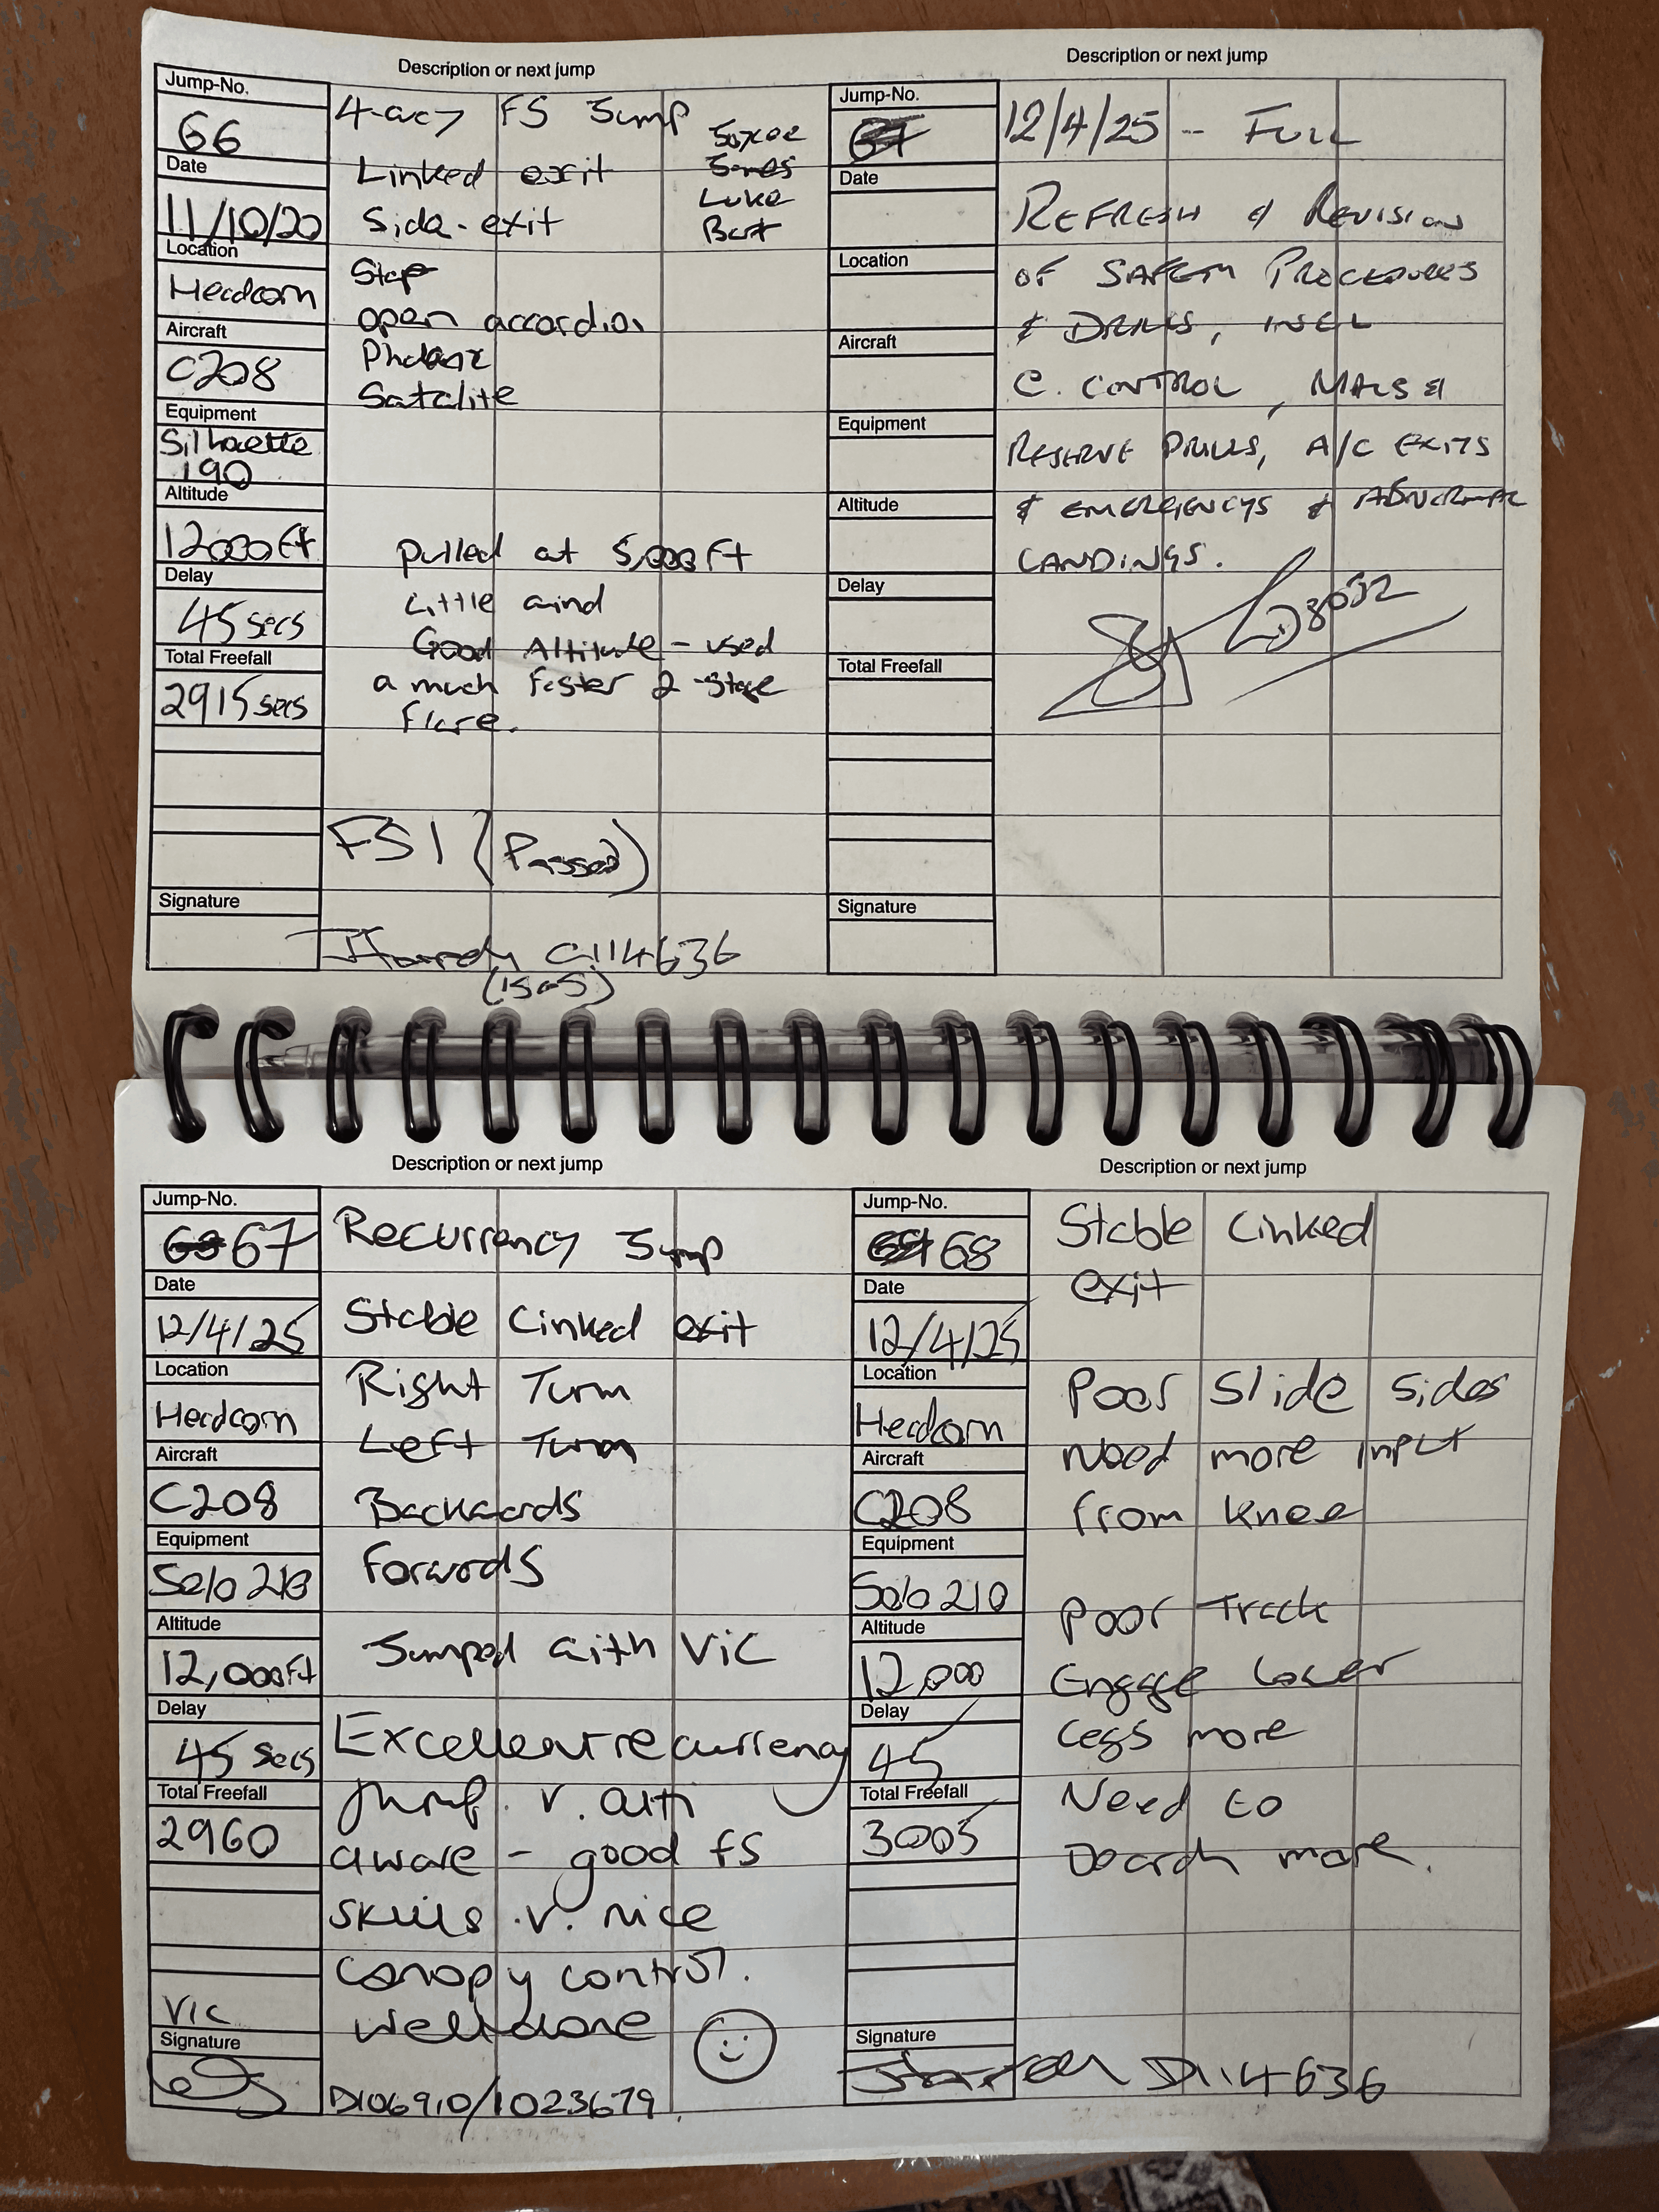 Description or next jump
Jump-No.
66
Date
11/10/20
Location
Headcorn
Aircraft
C208
Equipment
Silhouette
190
Altitude
12000ft
Delay
45 secs
Total Freefall
2915 secs
Signature
4-way FS Jump
Linked exit
Side-exit
James
Luke
Star
open accordian
Phalanx
Satalite
Pulled at 5,000ft
Little wind
Good Altitude - used
a much faster 2-stage
flare.
FS1 (Passed)
C114636
Description or next jump
Jump-No.
Date
Location
Aircraft
Equipment
Altitude
Delay
Total Freefall
Signature
12/4/25 - FULL
REFRESH & REVISION
OF SAFETY PROCEDURES
& DRILLS, INCL
C. CONTROL, MALS &
RESERVE DRILLS, A/C EXITS
& EMERGENCYS & ABNORMAL
LANDINGS.
Description or next jump
Jump-No.
67
Date
12/4/25
Location
Headcorn
Aircraft
C208
Equipment
Solo 210
Altitude
12,000ft
Delay
45 secs
Total Freefall
2960
Vic
Signature
Recurrency Jump
Stable Linked exit
Right Turn
Left Turn
Backwards
Forwards
Jumped with Vic
Excellent recurrency
jump. v. alti
aware - good fs
skills. v. nice
canopy control.
well done
D106910/1023679.
Description or next jump
Jump-No.
68
Date
12/4/25
Location
Headcorn
Aircraft
C208
Equipment
Solo 210
Altitude
12,000
Delay
45
Total Freefall
3005
Signature
Stable Linked
exit
Poor Slide Sides
Need more input
from knee
Poor Track
Engage lower
legs more
Need to
Dearch more.
D114636